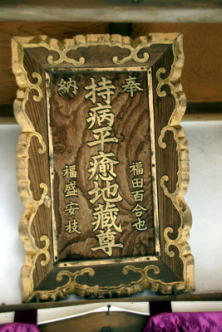 奉納
持病平癒地藏尊
福田百合也
福盛安枝